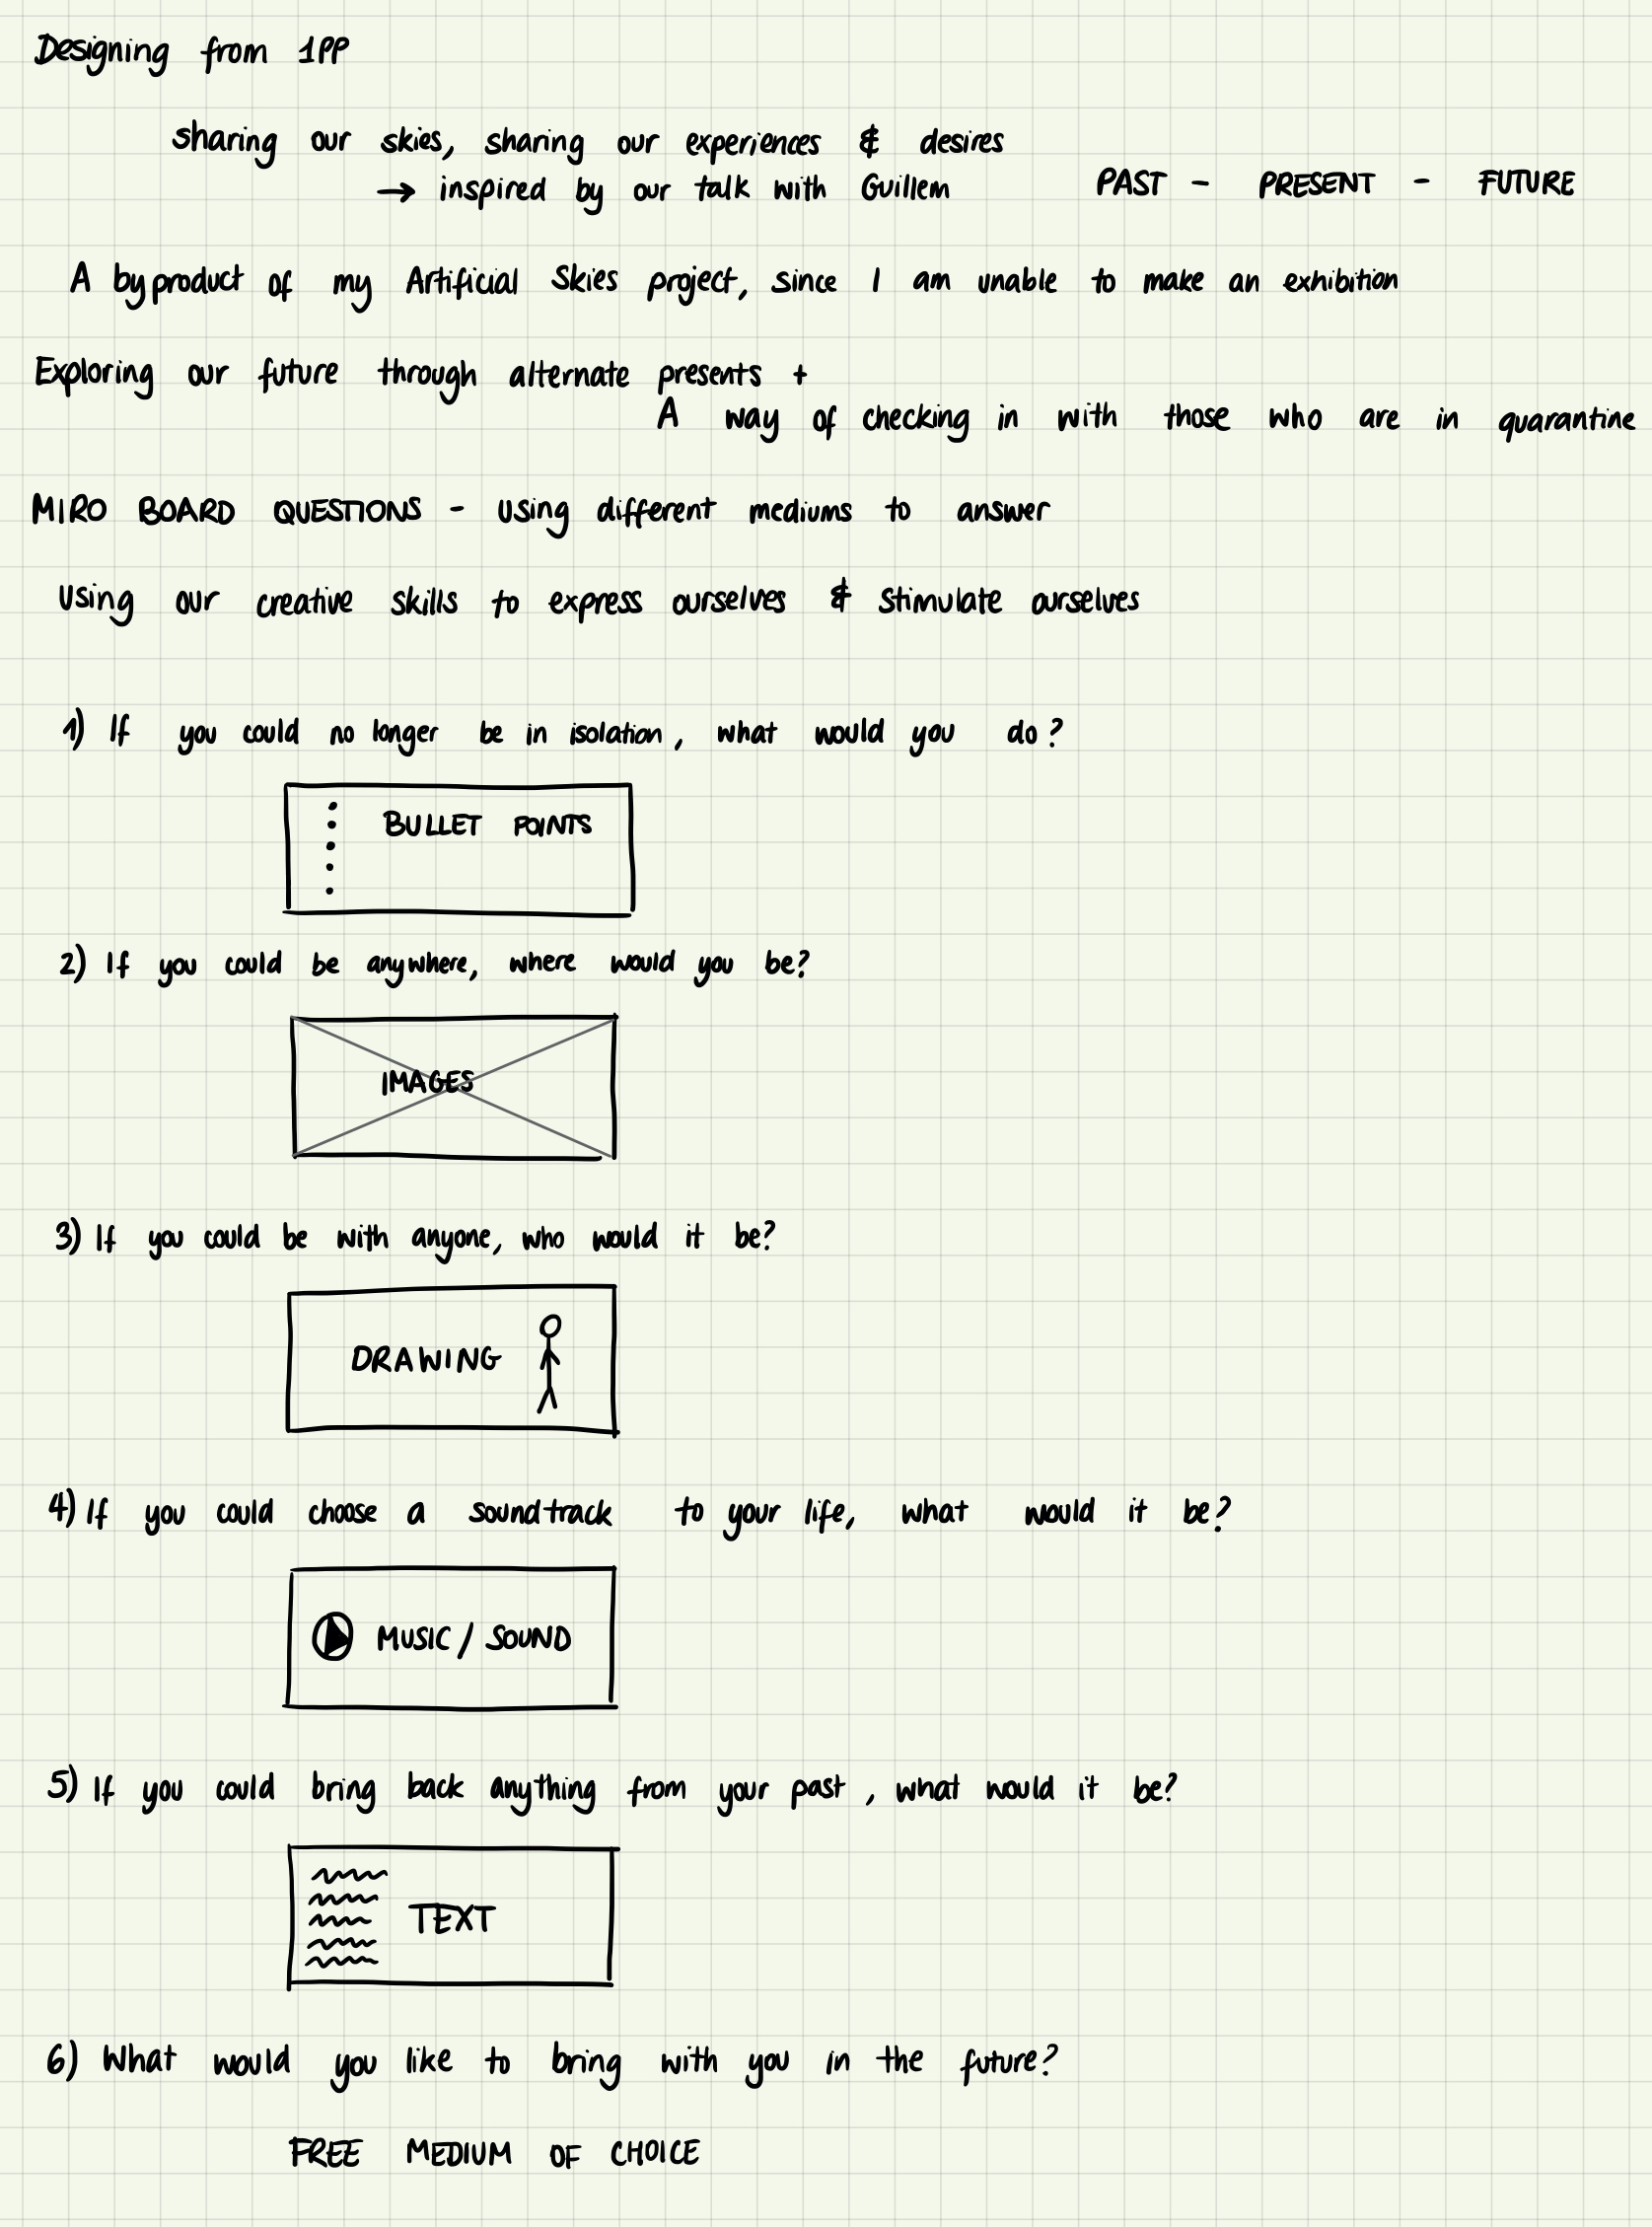 Designing from 1PP
sharing our skies, sharing our experiences & desires
→ inspired by our talk with Guillem
PAST - PRESENT - FUTURE
A byproduct of my Artificial Skies project, since I am unable to make an exhibition
Exploring our future through alternate presents +
A way of checking in with those who are in quarantine
MIRO BOARD QUESTIONS - using different mediums to answer
using our creative skills to express ourselves & stimulate ourselves
1) If you could no longer be in isolation, what would you do?
BULLET POINTS
2) If you could be anywhere, where would you be?
IMAGES
3) If you could be with anyone, who would it be?
DRAWING
4) If you could choose a soundtrack to your life, what would it be?
MUSIC / SOUND
5) If you could bring back anything from your past, what would it be?
TEXT
6) What would you like to bring with you in the future?
FREE MEDIUM OF CHOICE